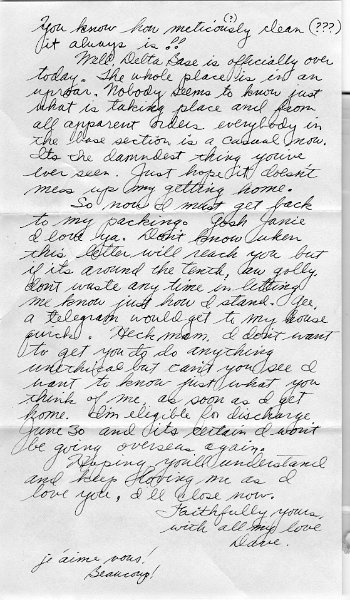 You know how meticiously clean (???)
(?)
it always is!!
Well Delta Base is officially over
today. The whole place is in an
uproar. Nobody seems to know just
what is taking place and from
all apparent orders everybody in
the base section is a casual now.
Its the damndest thing you've
ever seen. Just hope it doesn't
mess up my getting home.
So now I must get back
to my packing. Gosh Janie
I love ya. Don't know when
this letter will reach you but
if its around the tenth, by golly
dont waste any time in letting
me know just how I stand. Gee,
a telegram would get to my house
quick. Heck mam, I don't want
to get you to do anything
unethical but can't you see I
want to know just what you
think of me, as soon as I get
home. I'm eligible for discharge
June 30 and its certain I won't
be going overseas again.
Hoping you'll understand
and keep loving me as I
love you, I'll close now.
Faithfully yours,
with all my love
Dave.
je'aime vous!
Beaucoup!